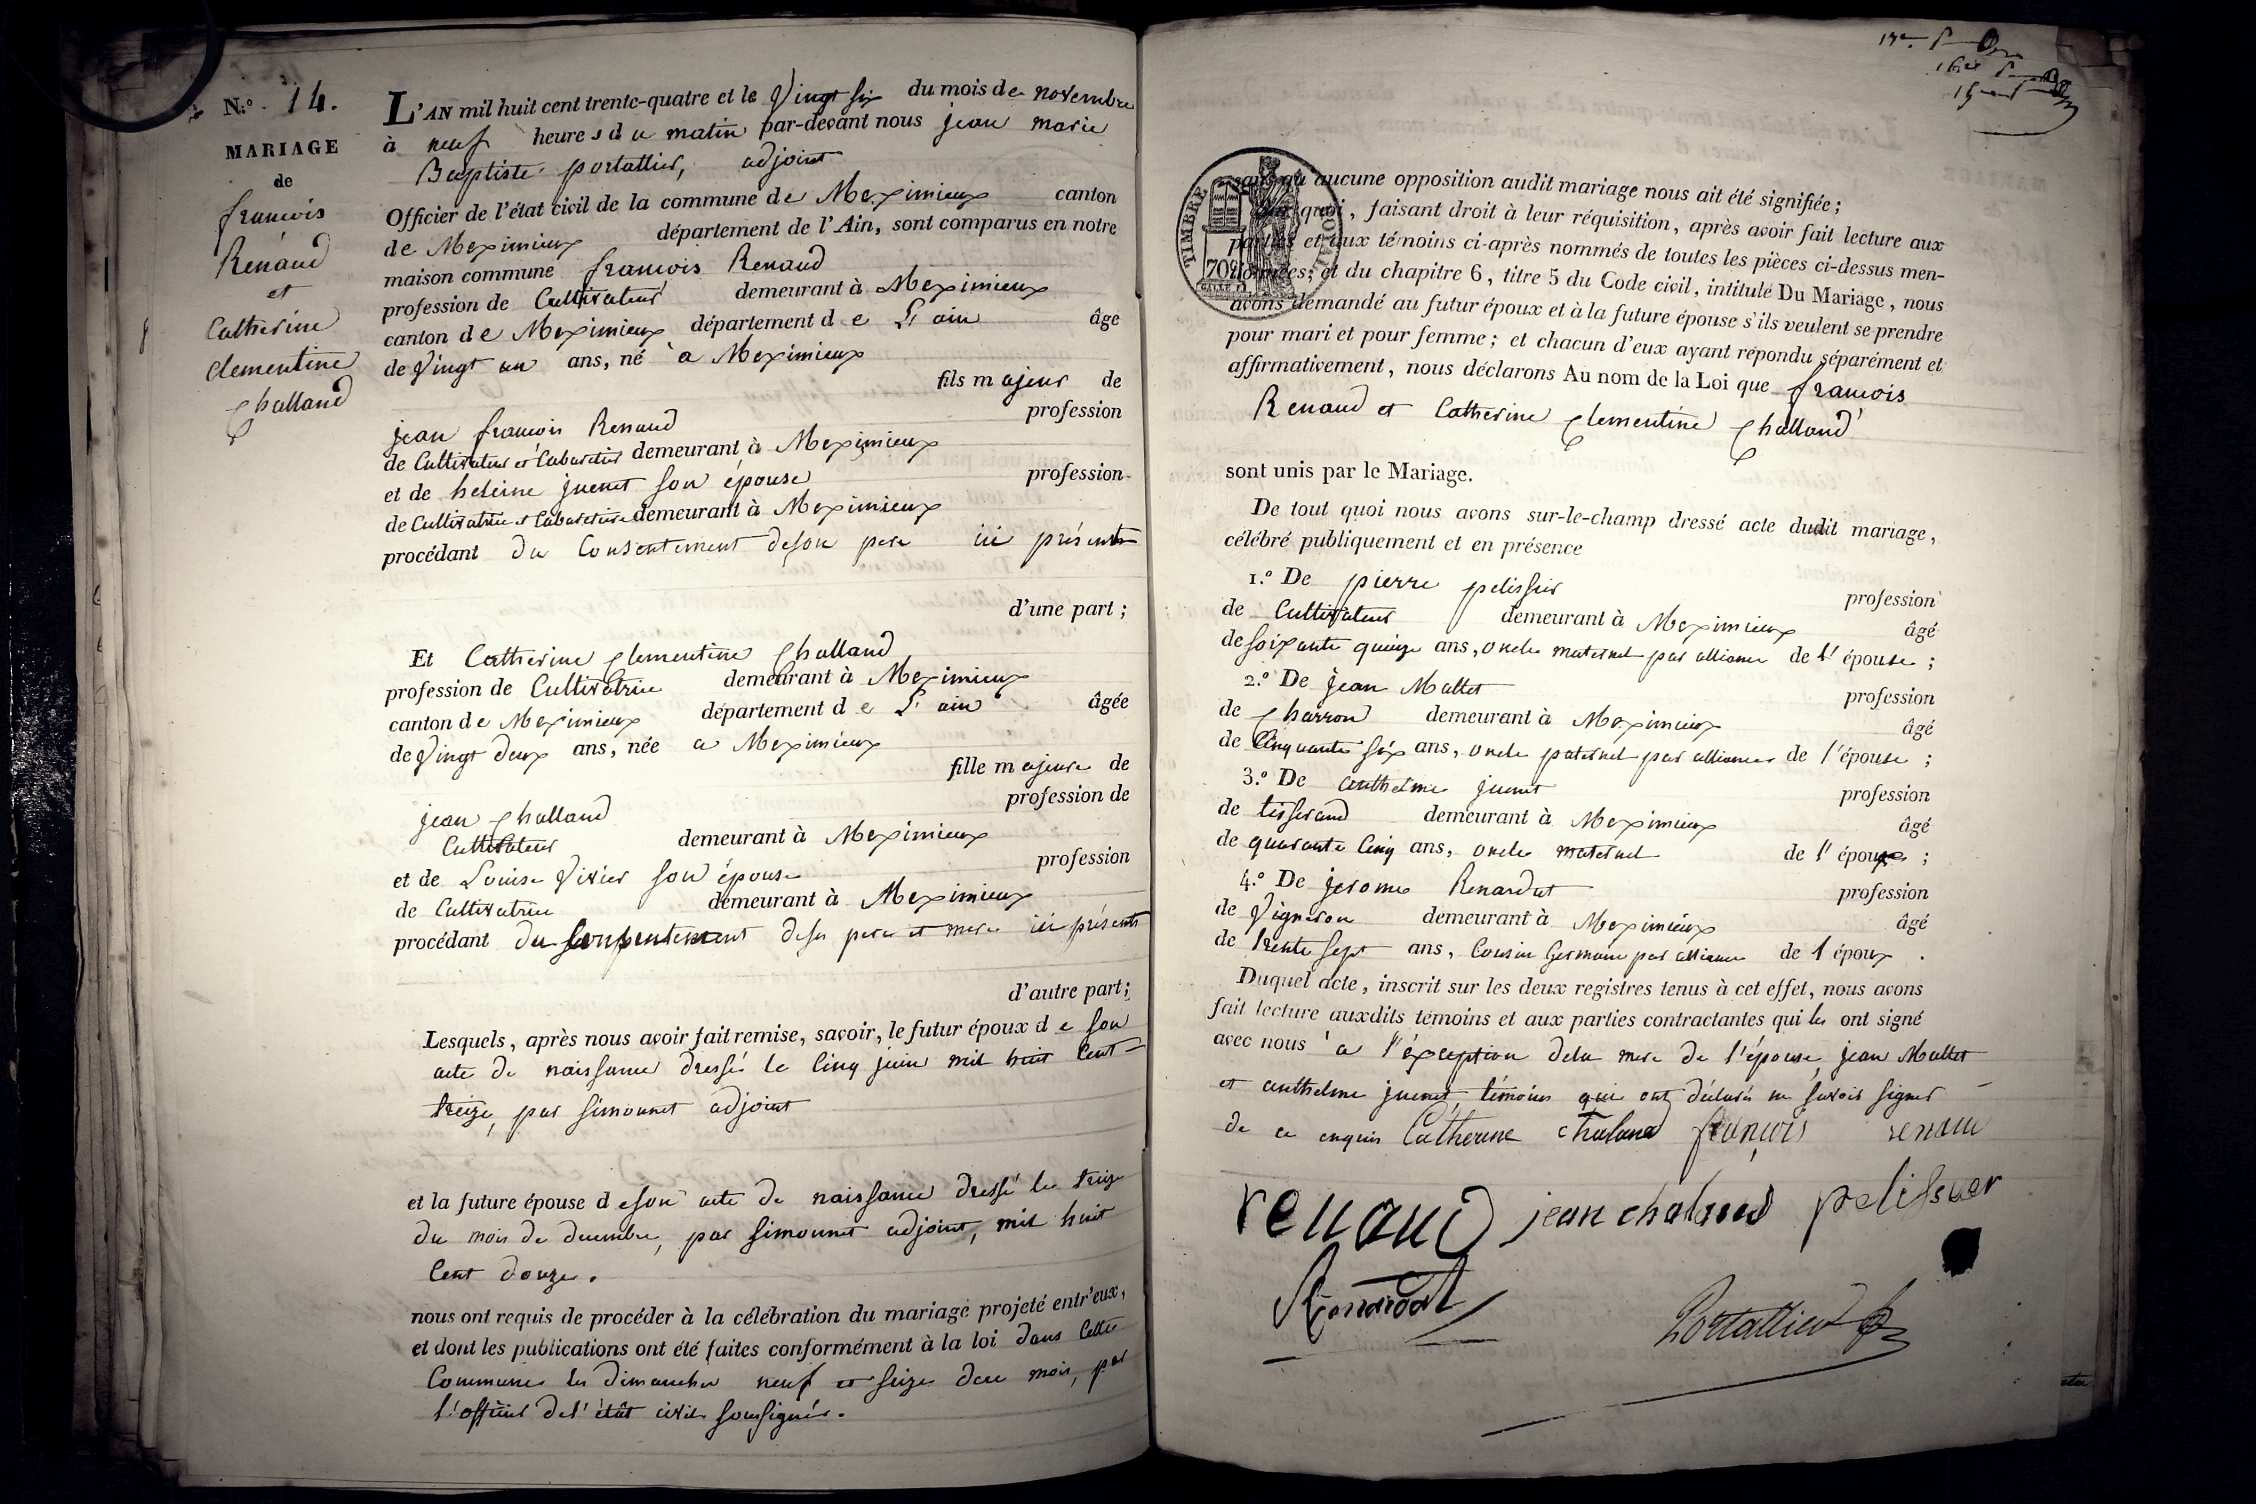 N.º 14.
MARIAGE
de
françois
Renaud
et
Catherine
Clementine
Challand
L'AN mil huit cent trente-quatre et le Vingt six du mois de novembre
à neuf heures du matin par-devant nous jean marie
Baptiste portallier, adjoint
Officier de l'état civil de la commune de Meximieux canton
de Meximieux département de l'Ain, sont comparus en notre
maison commune françois Renaud
profession de Cultivateur demeurant à Meximieux
canton de Meximieux département de L'ain âge
de Vingt un ans, né à Meximieux
fils majeur de
jean françois Renaud profession
de Cultivateur et Cabaretier demeurant à Meximieux
et de heleine juenet son épouse profession
de Cultivatrice et Cabaretiere demeurant à Meximieux
procédant du Consentement de son pere ici présent
d'une part ;
Et Catherine Clementine Challand
profession de Cultivatrice demeurant à Meximieux
canton de Meximieux département de L'ain âgée
de Vingt deux ans, née a Meximieux
fille majeure de
jean Challand profession de
Cultivateur demeurant à Meximieux
et de Louise Vivier son épouse profession
de Cultivatrice demeurant à Meximieux
procédant du Consentement de ses pere et mere ici présents
d'autre part ;
Lesquels, après nous avoir fait remise, savoir, le futur époux de son
acte de naissance dressé le Cinq juin mil huit Cent
treize, par simonnet adjoint
et la future épouse de son acte de naissance dressé le treize
du mois de decembre, par simonnet adjoint, mil huit
Cent douze.
nous ont requis de procéder à la célébration du mariage projeté entr'eux,
et dont les publications ont été faites conformément à la loi dans Cette
Commune les dimanches neuf et seize de ce mois, par
l'officier de l'état civil soussigné.
sans qu'aucune opposition audit mariage nous ait été signifiée ;
sur quoi, faisant droit à leur réquisition, après avoir fait lecture aux
parties et aux témoins ci-après nommés de toutes les pièces ci-dessus men-
tionnées; et du chapitre 6, titre 5 du Code civil, intitulé Du Mariage, nous
avons demandé au futur époux et à la future épouse s'ils veulent se prendre
pour mari et pour femme ; et chacun d'eux ayant répondu séparément et
affirmativement, nous déclarons Au nom de la Loi que françois
Renaud et Catherine Clementine Challand
TIMBRE ROYAL
70c
sont unis par le Mariage.
De tout quoi nous avons sur-le-champ dressé acte dudit mariage,
célébré publiquement et en présence
1.º De pierre pelissier profession
de Cultivateur demeurant à Meximieux âgé
de soixante quinze ans, oncle maternel par alliance de l'épouse ;
2.º De jean Mattet profession
de Charron demeurant à Meximieux âgé
de Cinquante six ans, oncle paternel par alliance de l'épouse ;
3.º De anthelme juenet profession
de tisserand demeurant à Meximieux âgé
de quarante Cinq ans, oncle maternel de l'époux ;
4.º De jerome Renardat profession
de Vigneron demeurant à Meximieux âgé
de trente sept ans, Cousin Germain par alliance de l époux .
Duquel acte, inscrit sur les deux registres tenus à cet effet, nous avons
fait lecture auxdits témoins et aux parties contractantes qui les ont signé
avec nous à l'éxception de la mere de l'épouse, jean Mattet
et anthelme juenet, témoins qui ont déclarés ne savoir signer
de ce enquis Catherine chaland françois renau
renaud jean chaland pelissier
Renardat Portallier